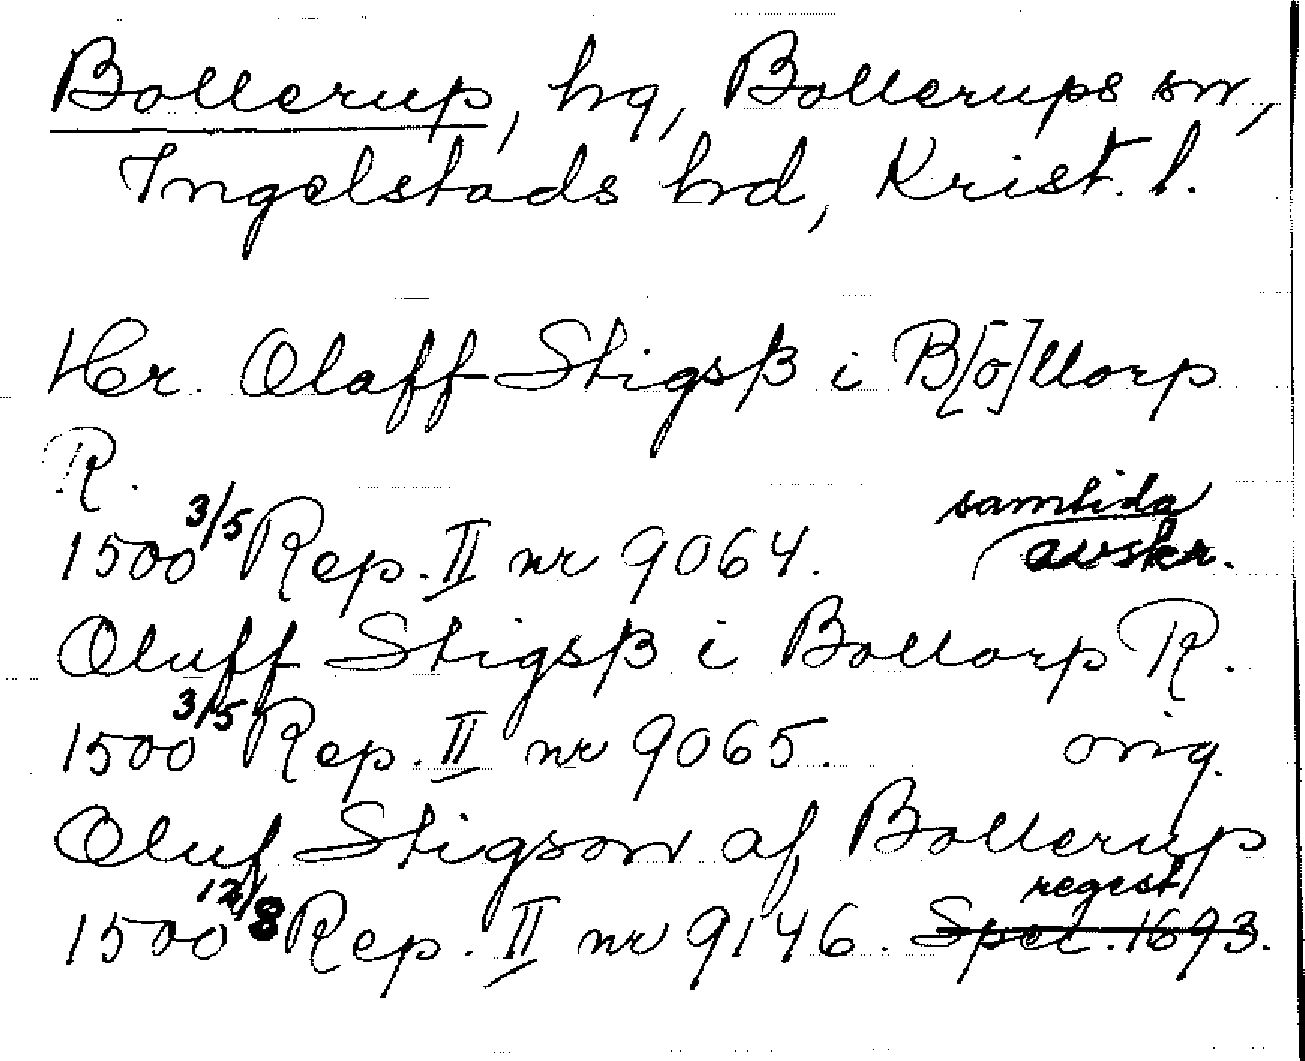 Bollerup, hg, Bollerups sn,
Ingelstads hd, Krist. l.
Hr. Olaff Stigsß i B[o]llorp
R.
1500 3/5 Rep. II nr 9064. samtida avskr.
Oluff Stigsß i Bollorp R.
1500 3/5 Rep. II nr 9065. orig.
Oluf Stigson af Bollerup
1500 12/8 Rep. II nr 9146. regest Spec. 1693.